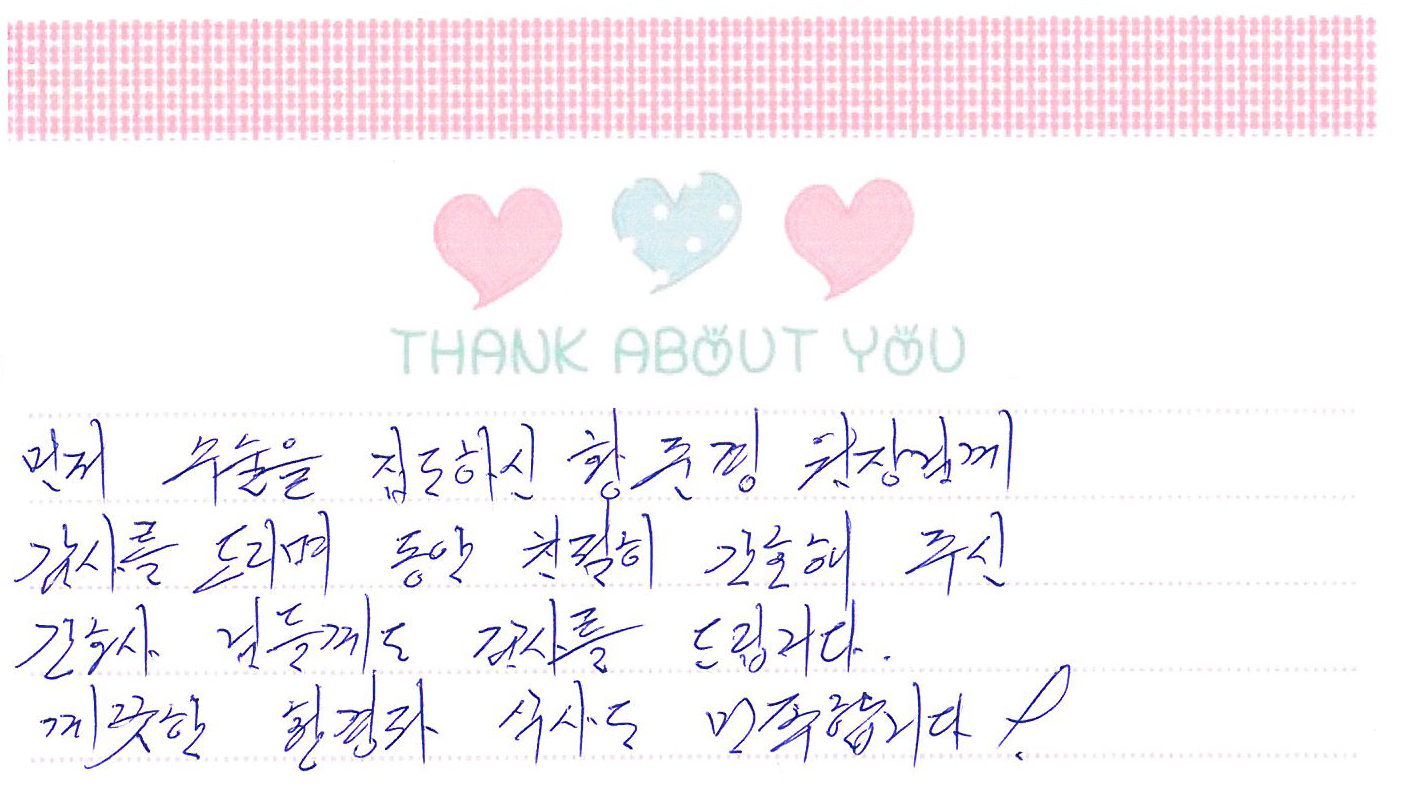 THANK ABOUT YOU
먼저 수술을 집도하신 황준경 원장님께
감사를 드리며 동안 친절히 간호해 주신
간호사 님들께도 감사를 드립니다.
깨끗한 환경과 식사도 만족합니다!